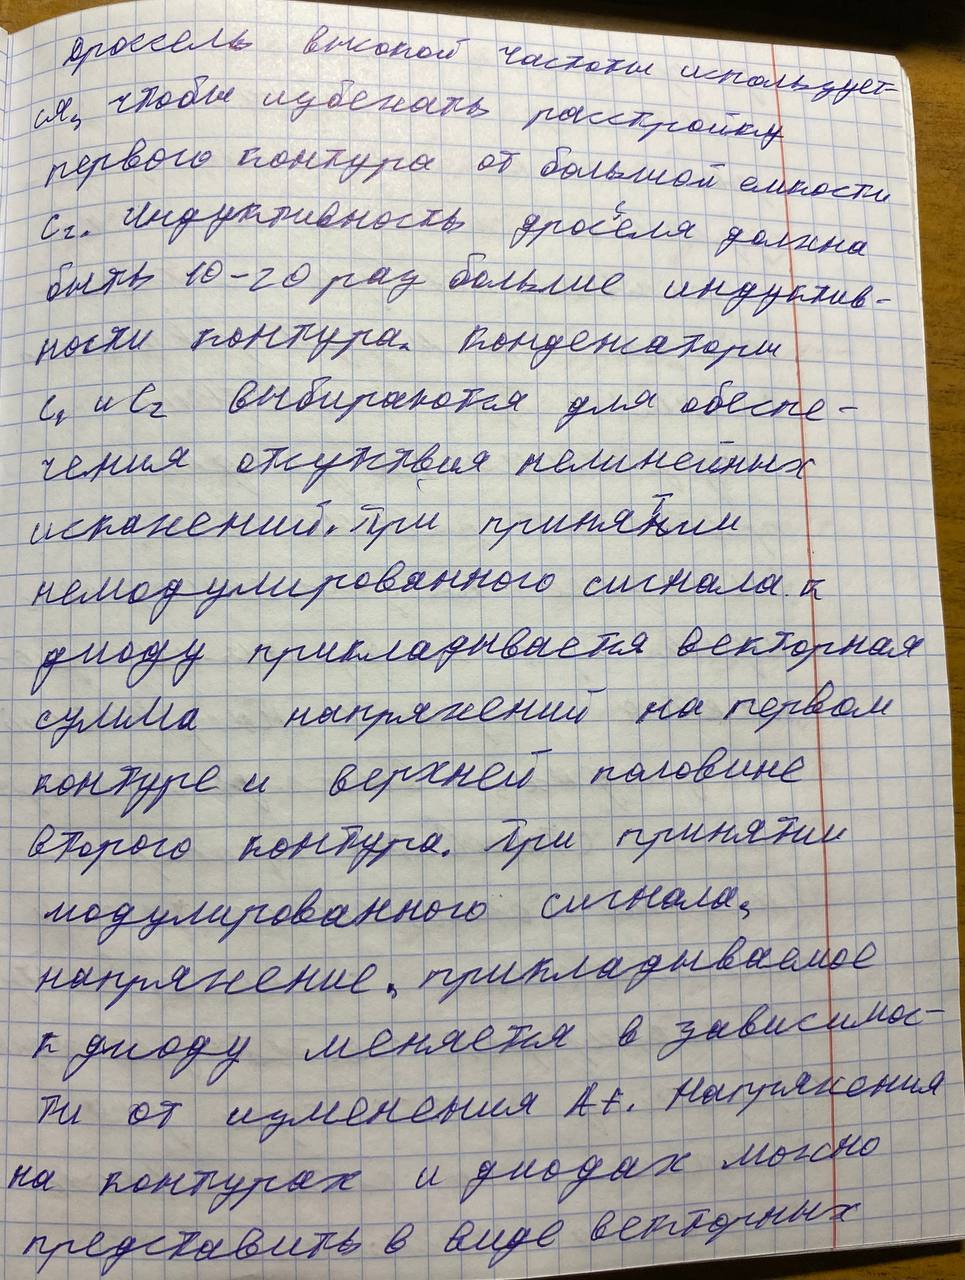 Дроссель высокой частоты использует-
ся, чтобы избежать расстройку
первого контура от большой емкости
C₂. Индуктивность дросселя должна
быть 10-20 раз больше индуктив-
ности контура. Конденсаторы
C₁ и C₂ выбираются для обеспе-
чения отсутствия нелинейных
искажений. При принятии
немодулированного сигнала к
диоду прикладывается векторная
сумма напряжений на первом
контуре и верхней половине
второго контура. При принятии
модулированного сигнала,
напряжение, прикладываемое
к диоду меняется в зависимос-
ти от изменения Δf. Напряжения
на контурах и диодах можно
представить в виде векторных